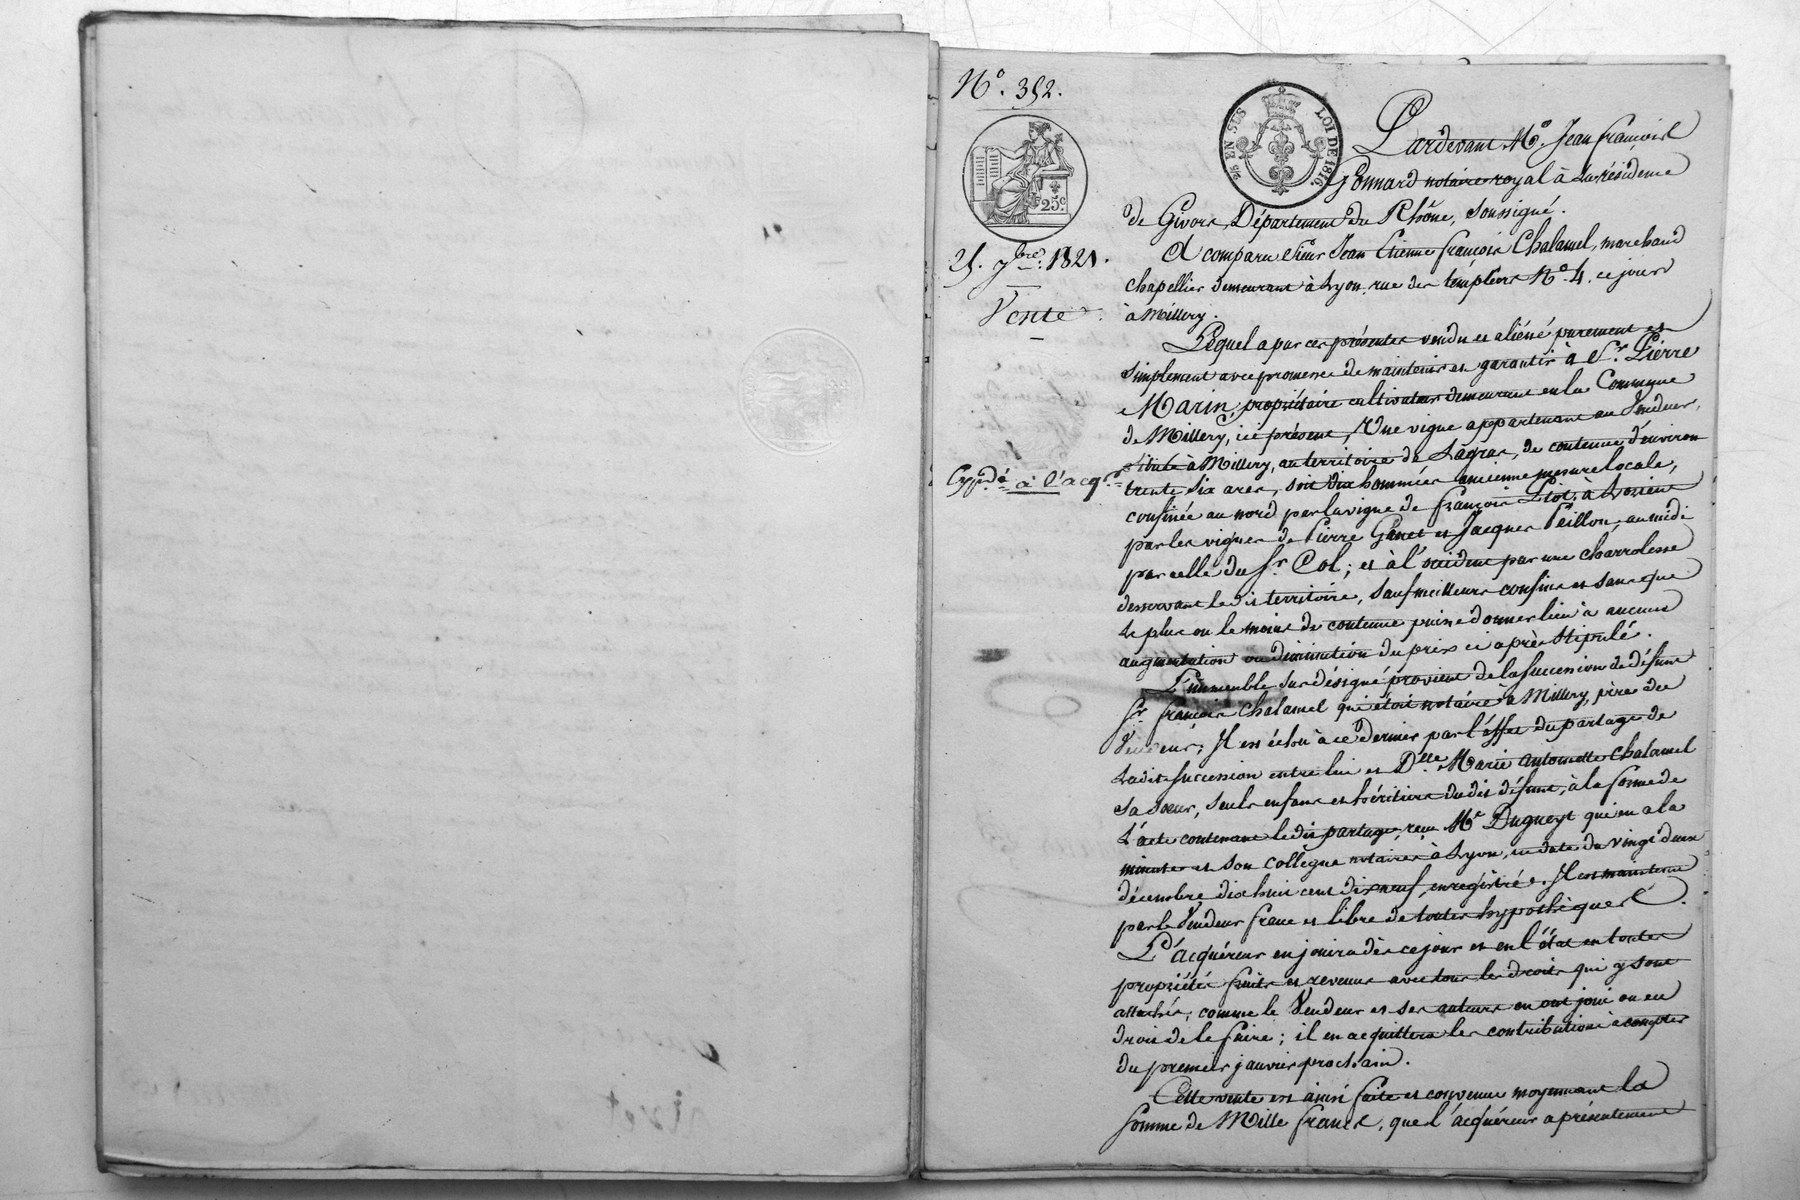 N.° 352.
25.c
2/5 EN SUS LOI DE 1816.
25. 7bre 1821.
Vente
Expdé à l'acqr
Pardevant Me. Jean françois
Gonnard notaire royal à la résidence
de Givors, Département du Rhône, soussigné.
A comparu Sieur Jean Etienne françois Chalamel, marchand
chapellier demeurant à Lyon, rue des templiers N.° 4. ce jour
à Millery.
Lequel a par ces présentes vendu et aliéné purement et
simplement avec promesse de maintenir et garantir à Sr. Pierre
Marin, propriétaire cultivateur demeurant en la Commune
de Millery, ici présent, Une vigne appartenant au Vendeur,
située à Millery, au territoire de Lagras, de contenue d'environ
trente six ares, soit dix hommées ancienne mesure locale,
confinée au nord par la vigne de françois Liot, à Lorient
par les vignes de Pierre Ganet et Jacques Peillon, au midi
par celle du Sr. Col; et à l'occident par une charrolesse
desservant ledit territoire, sauf meilleurs confins et sans que
le plus ou le moins de contenue puisse donner lieu à aucune
augmentation ou diminution du prix ci après stipulé.
L'immeuble sus désigné provient de la succession de défunt
Sr. françois Chalamel qui étoit notaire à Millery, père du
Vendeur; Il est échu à ce dernier par l'effet du partage de
ladite succession entre lui et Dlle. Marie antoinette Chalamel
sa soeur, seuls enfans et héritiers dudit défunt, à la forme de
l'acte contenant ledit partage, reçu Me Dugueyt qui en a la
minute et son collègue notaires à Lyon, en date du vingt deux
décembre dix huit cent dix neuf, enregistré. Il est maintenu
par le Vendeur franc et libre de toutes hypothèques.
L'acquéreur en jouira dès ce jour et en l'état en toutes
propriétés fruits et revenus avec tous les droits qui y sont
attachés, comme le Vendeur et ses auteurs en ont joui ou eu
droit de le faire; il en acquittera les contributions à compter
du premier janvier prochain.
Cette vente est ainsi faite et convenue moyennant la
somme de Mille francs, que l'acquéreur a présentement